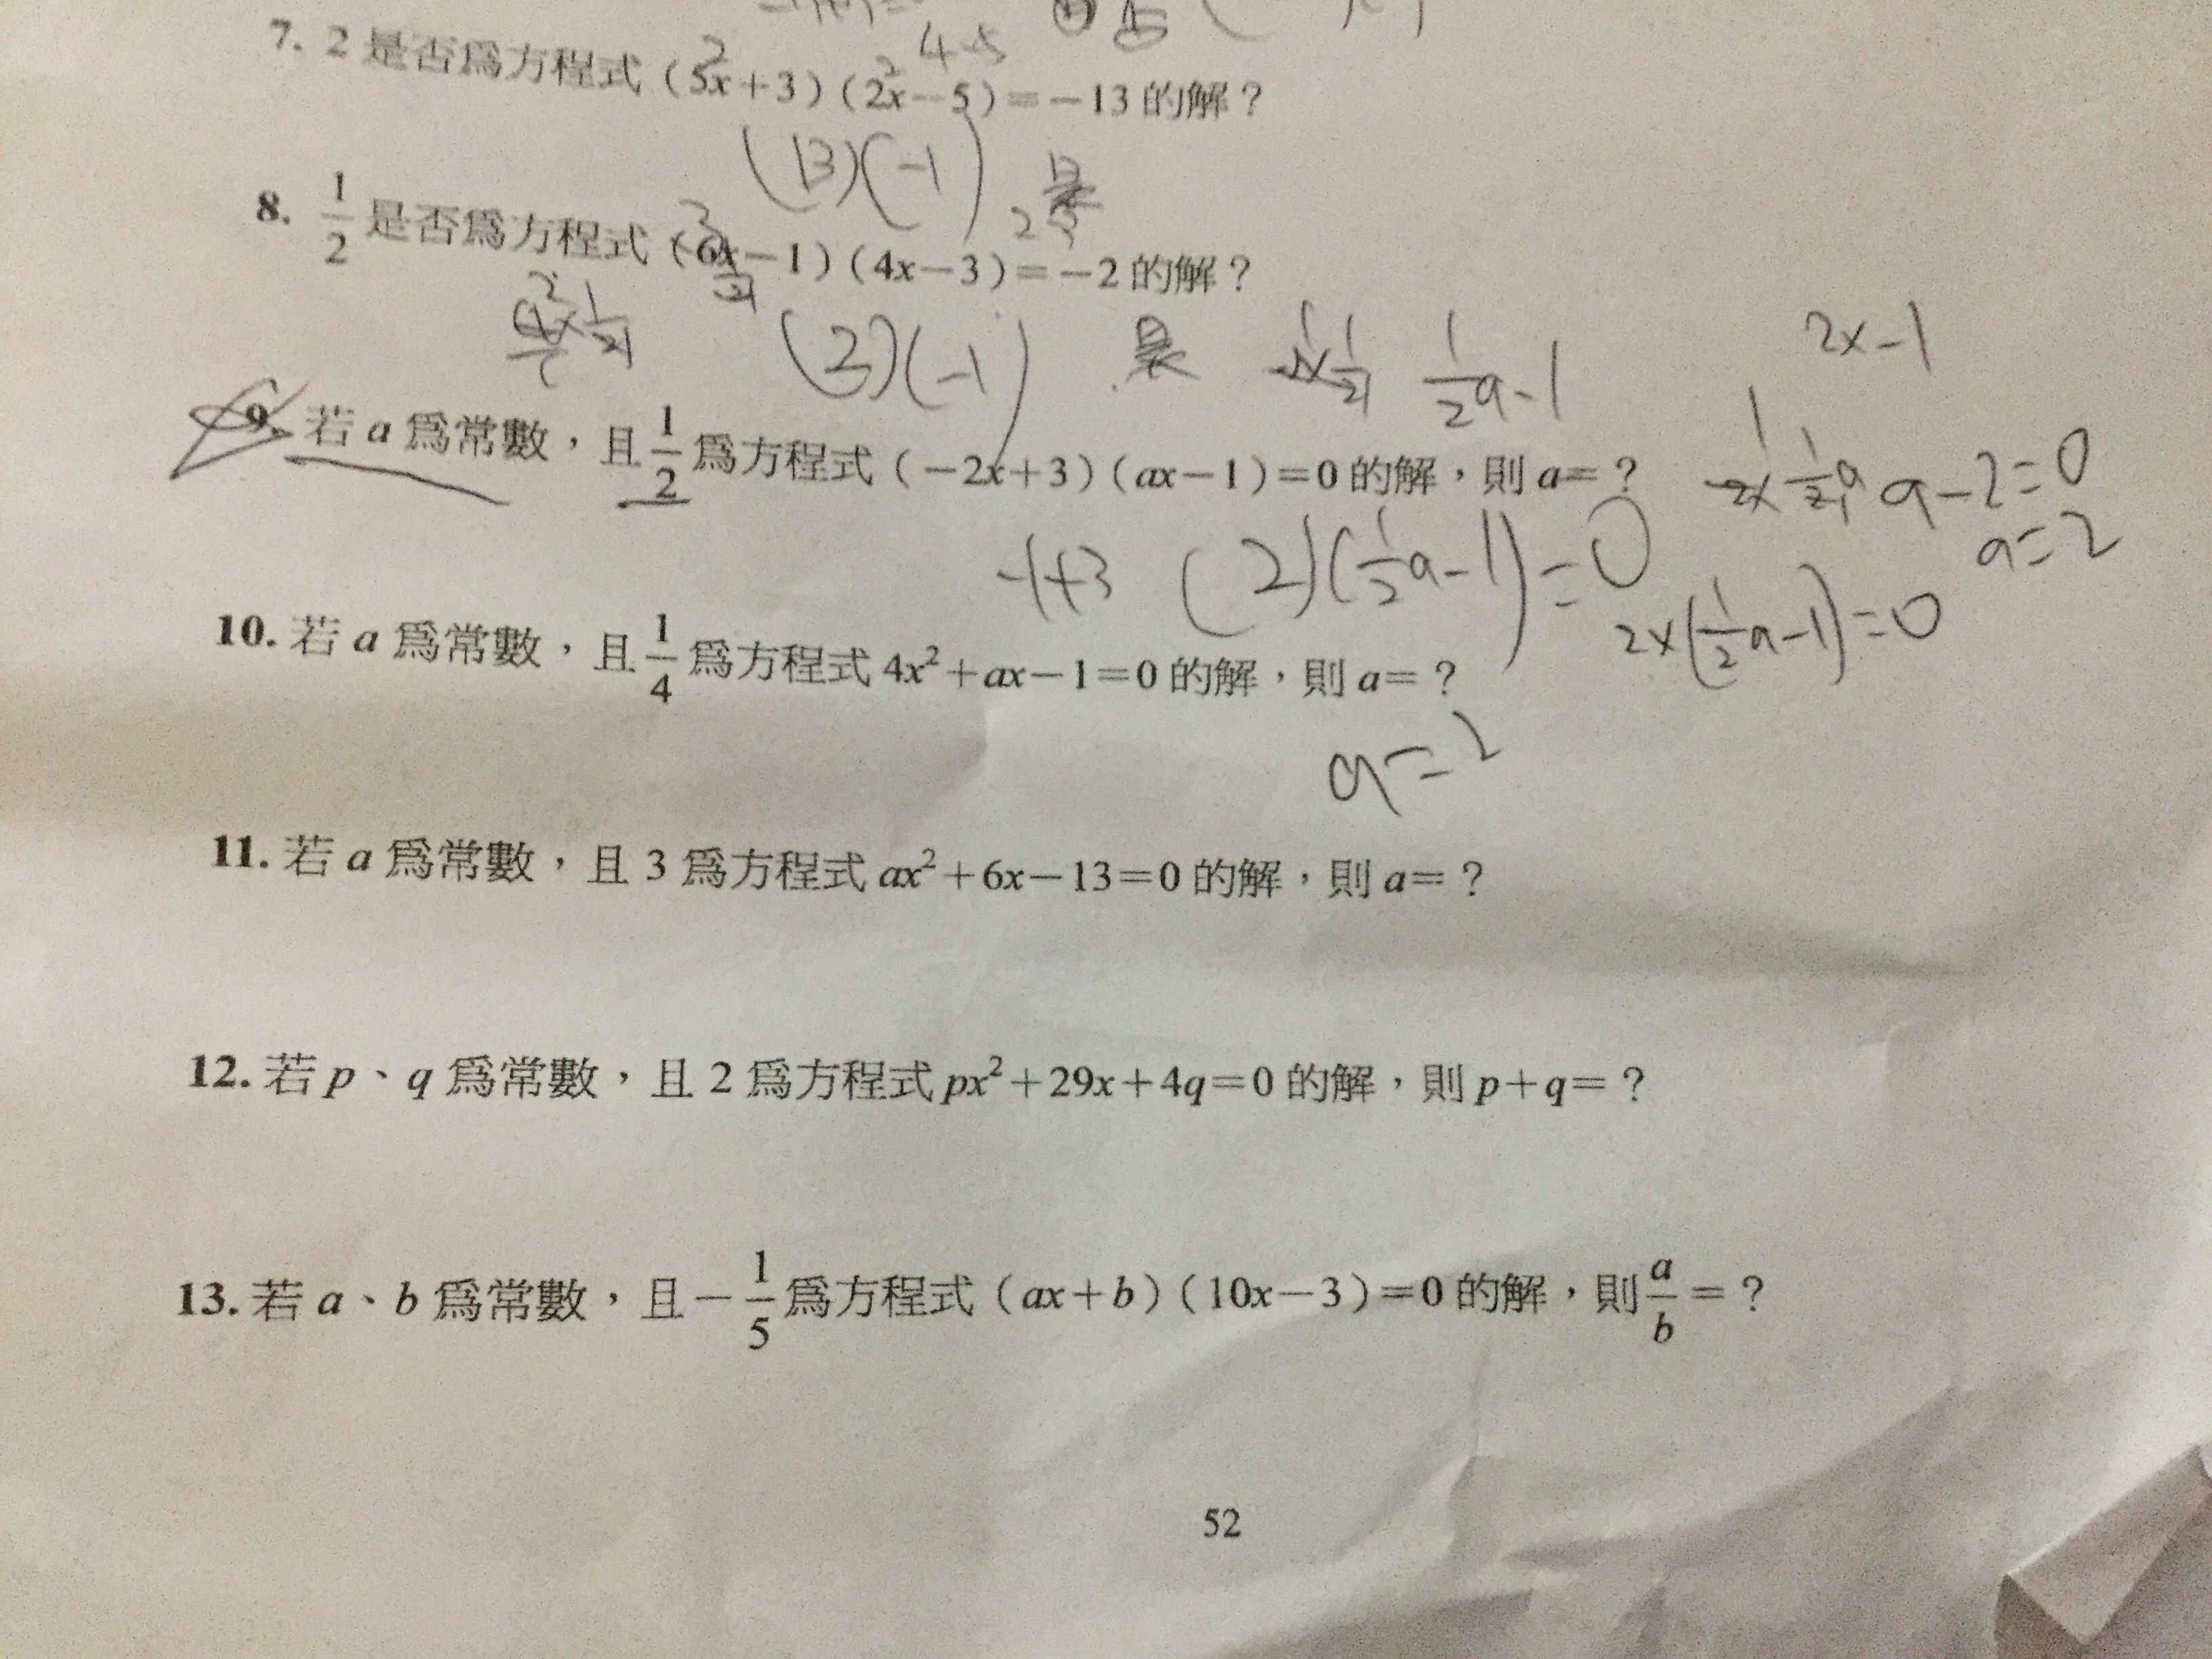 4-5
7. 2 是否為方程式（5x+3）（2x-5）=-13 的解？
(13)(-1)
是
8. 1/2 是否為方程式（6x-1）（4x-3）=-2 的解？
(2)(-1) 是 1/2a-1 2x-1
9. 若 a 為常數，且 1/2 為方程式（-2x+3）（ax-1）=0 的解，則 a=？
a-2=0
a=2
-1+3 (2)(1/2a-1)=0
2x(1/2a-1)=0
10. 若 a 為常數，且 1/4 為方程式 4x²+ax-1=0 的解，則 a=？
a=2
11. 若 a 為常數，且 3 為方程式 ax²+6x-13=0 的解，則 a=？
12. 若 p、q 為常數，且 2 為方程式 px²+29x+4q=0 的解，則 p+q=？
13. 若 a、b 為常數，且 -1/5 為方程式（ax+b）（10x-3）=0 的解，則 a/b=？
52